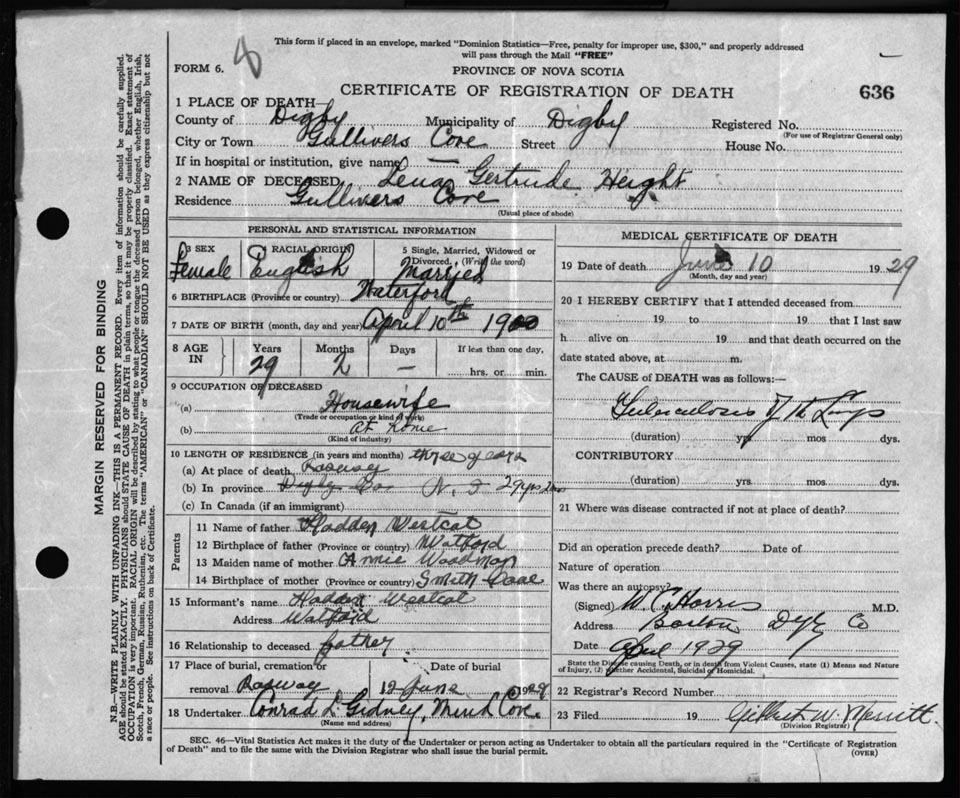 This form if placed in an envelope, marked "Dominion Statistics—Free, penalty for improper use, $300," and properly addressed
will pass through the Mail "FREE"
FORM 6.
8
PROVINCE OF NOVA SCOTIA
CERTIFICATE OF REGISTRATION OF DEATH
636
1 PLACE OF DEATH—
County of Digby Municipality of Digby Registered No.
(For use of Registrar General only)
City or Town Gullivers Cove Street House No.
If in hospital or institution, give name —
2 NAME OF DECEASED Lena Gertrude Height
Residence Gullivers Cove
(Usual place of abode)
PERSONAL AND STATISTICAL INFORMATION
3 SEX Female
4 RACIAL ORIGIN English
5 Single, Married, Widowed or Divorced. (Write the word) Married
6 BIRTHPLACE (Province or country) Waterford
7 DATE OF BIRTH (month, day and year) April 10th 1900
8 AGE IN Years 29 Months 2 Days — If less than one day, hrs. or min.
9 OCCUPATION OF DECEASED
(a) Housewife
(Trade or occupation or kind of work)
(b) at home
(Kind of industry)
10 LENGTH OF RESIDENCE (in years and months) three years
(a) At place of death, Rossway
(b) In province Digby Co. N. S 29 yrs 2 mo
(c) In Canada (if an immigrant)
Parents
11 Name of father Hadden Westcot
12 Birthplace of father (Province or country) Watford
13 Maiden name of mother Annie Woodman
14 Birthplace of mother (Province or country) Smith
15 Informant's name Hadden Westcot
Address Watford
16 Relationship to deceased father.
17 Place of burial, cremation or removal Rossway
Date of burial 12 June 1929
18 Undertaker Conrad L. Gidney, Mink Cove.
(Name and address)
MEDICAL CERTIFICATE OF DEATH
19 Date of death June 10 1929
(Month, day and year)
20 I HEREBY CERTIFY that I attended deceased from
19 to 19 that I last saw
h alive on 19 and that death occurred on the
date stated above, at m.
The CAUSE of DEATH was as follows:—
Tuberculosis of the Lungs
(duration) yrs. mos dys.
CONTRIBUTORY
(duration) yrs. mos dys.
21 Where was disease contracted if not at place of death?
Did an operation precede death? Date of
Nature of operation
Was there an autopsy?
(Signed) W C Harris M.D.
Address Barton Digby Co
Date April 1929
State the Disease causing Death, or in death from Violent Causes, state (1) Means and Nature
of Injury, (2) whether Accidental, Suicidal or Homicidal.
22 Registrar's Record Number
23 Filed 19 Gilbert W. Merritt.
(Division Registrar)
SEC. 46—Vital Statistics Act makes it the duty of the Undertaker or person acting as Undertaker to obtain all the particulars required in the "Certificate of Registration
of Death" and to file the same with the Division Registrar who shall issue the burial permit.
(OVER)
MARGIN RESERVED FOR BINDING
N.B.—WRITE PLAINLY WITH UNFADING INK—THIS IS A PERMANENT RECORD. Every item of information should be carefully supplied.
AGE should be stated EXACTLY. PHYSICIANS should STATE CAUSE OF DEATH in plain terms, so that it may be properly classified. Exact statement of
OCCUPATION is very important. RACIAL ORIGIN will be described by stating to what people or tongue the deceased person belonged, whether English, Irish,
Scotch, French, German, Russian, Ruthenian, etc. The terms "AMERICAN" or "CANADIAN" SHOULD NOT BE USED as they express citizenship but not
a race or people. See instructions on back of Certificate.